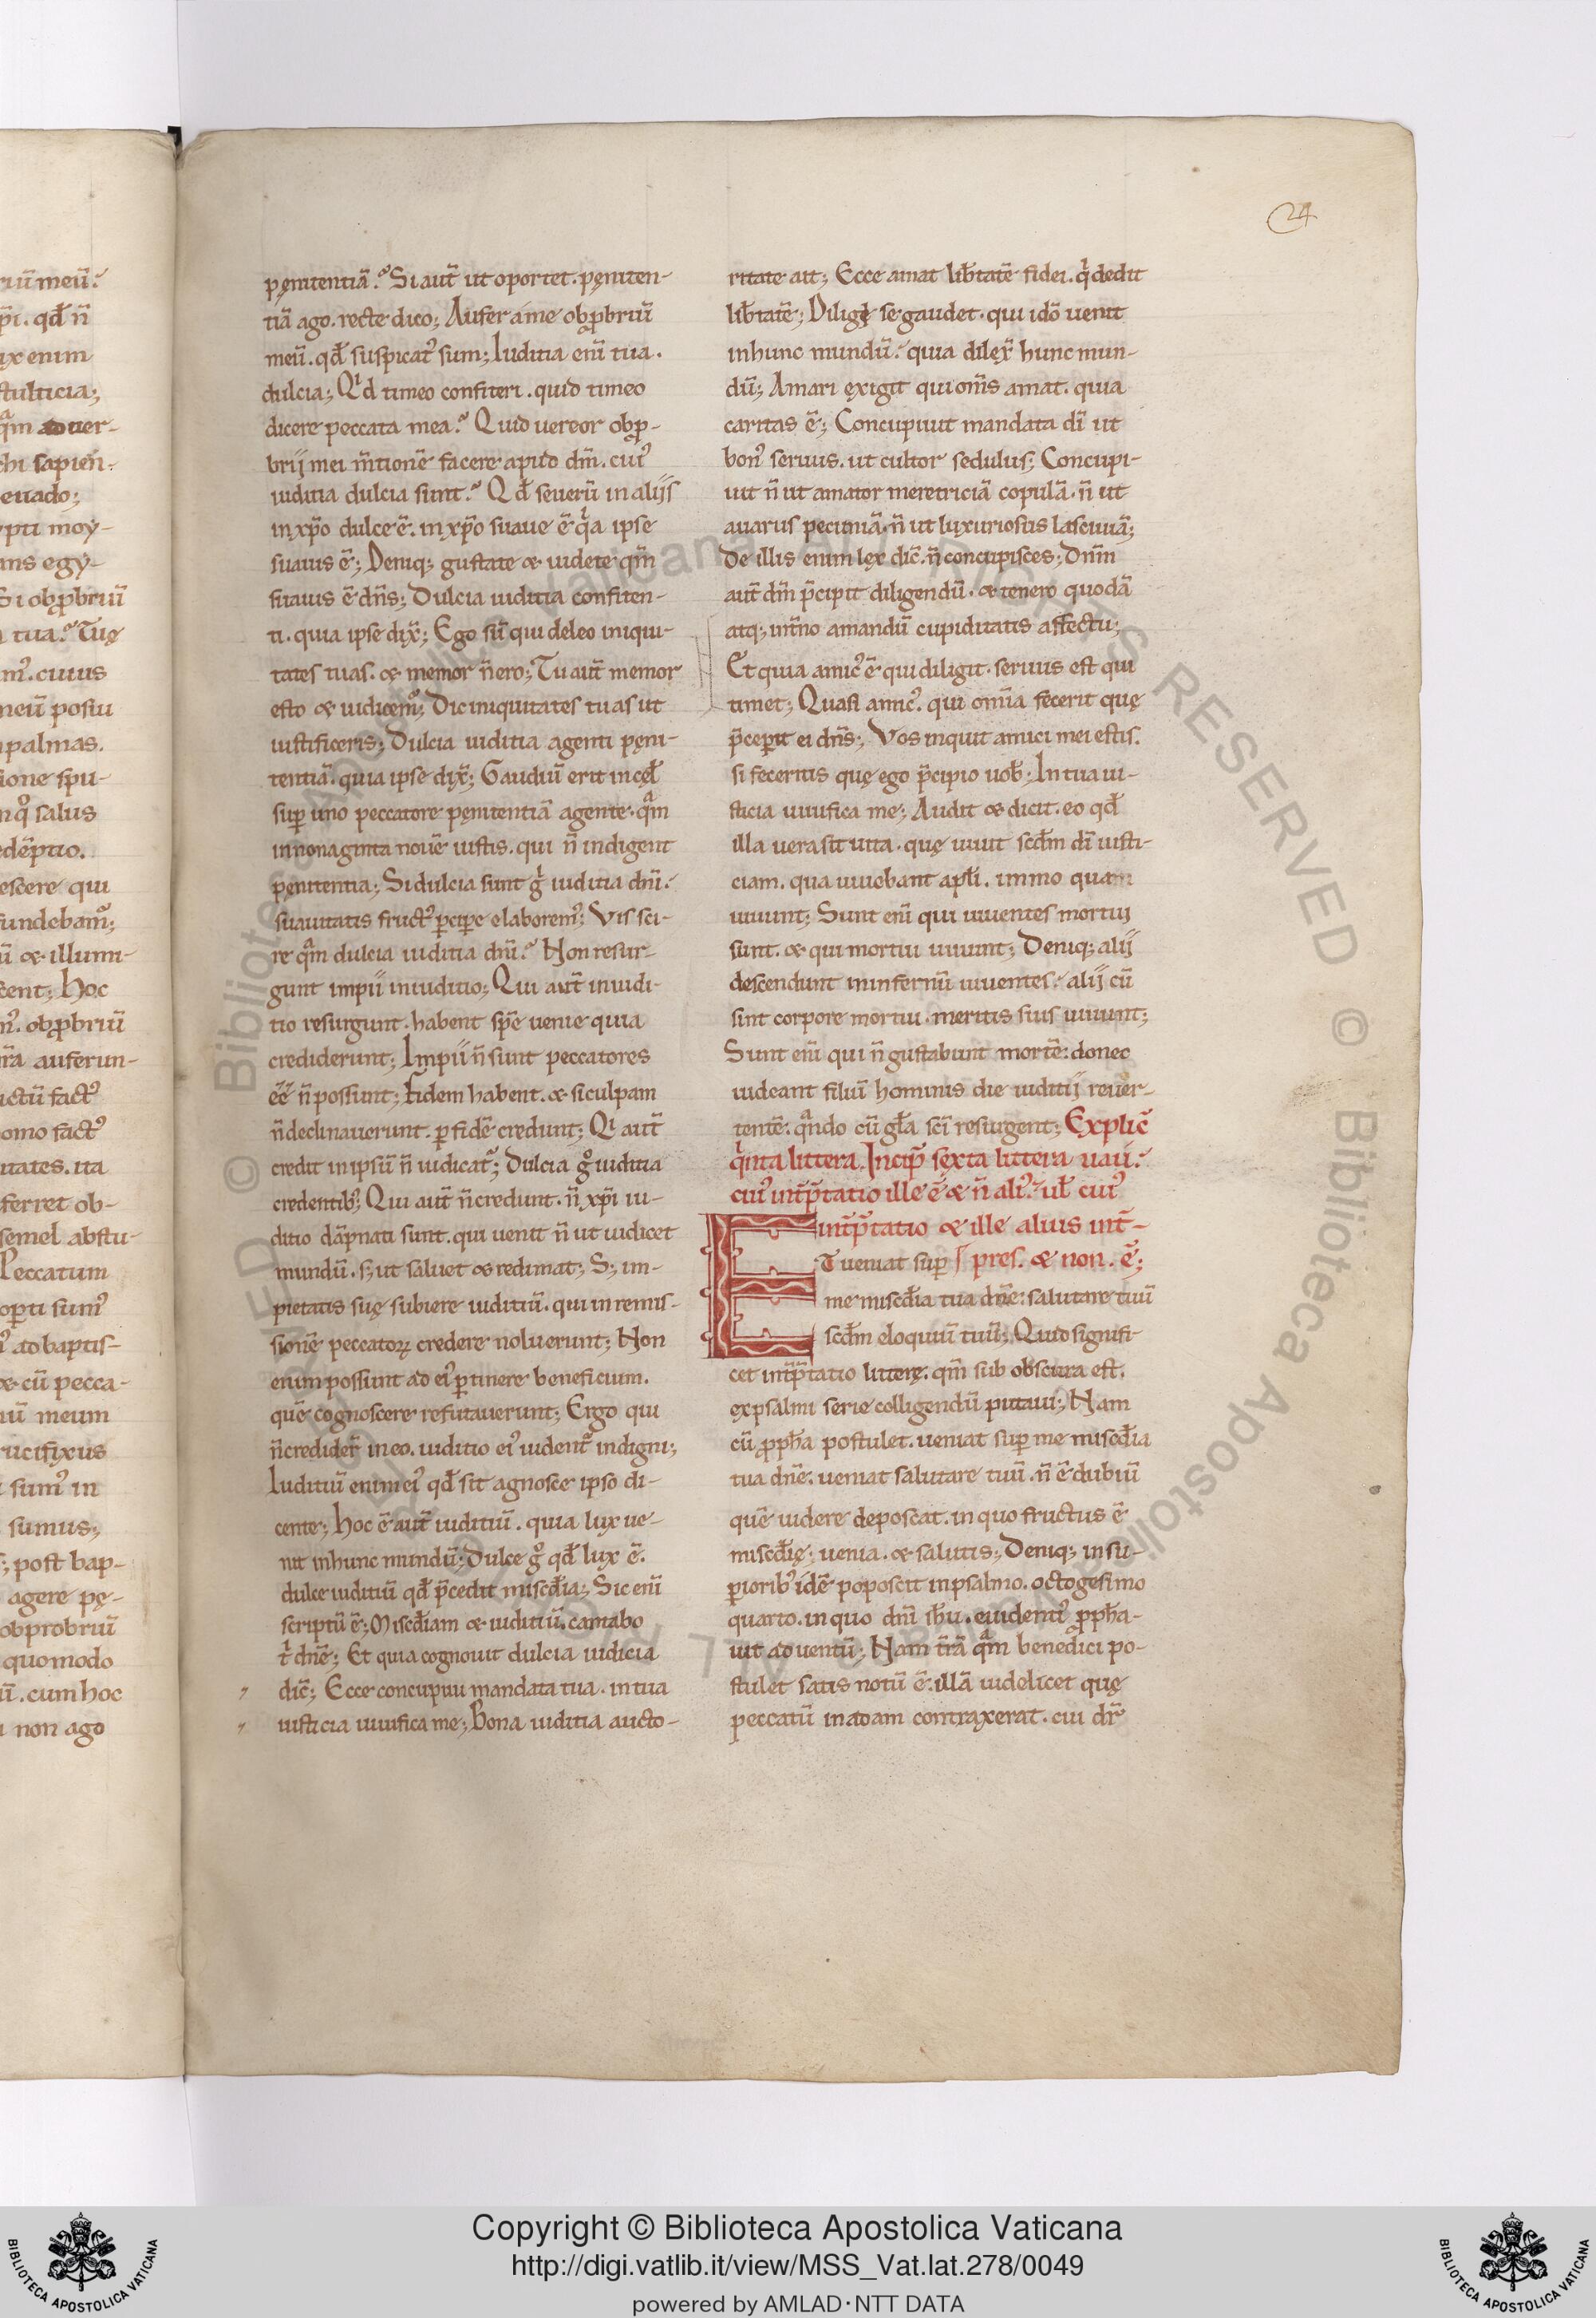 24
pęnitentiā. Si aut̄ ut oportet. pęniten-
tiā ago. recte dico; Aufer a me obꝓbriū
meū. qđ suspicat᷒ sum; Iuditia eni᷑ tua.
dulcia; Qͥd timeo confiteri. quid timeo
dicere peccata mea? Quid uereor obꝓ-
brij mei m̄tionē facere apud dm̄. cui᷒
iuditia dulcia sunt? Qđ seuerū in alijs
in xp̄o dulce ē. in xp̄o suaue ē qͥa ipse
suauis ē; Deniq; gustate & uidete qm̄
suauis ē dn̄s; Dulcia iuditia confiten-
ti. quia ipse dix̄; Ego sū qui deleo iniqui-
tates tuas. & memor n̄ ero; Tu aut̄ memor
esto & iudicem᷒; Dic iniquitates tuas ut
iustificeris; Dulcia iuditia agenti pęni-
tentiā. quia ipse dix̄; Gaudiū erit in cęł
suꝑ uno peccatore pęnitentiā agente. qᵃ̄m
in nonaginta nouē iustis. qui n̄ indigent
pęnitentia; Si dulcia sunt gͥ iuditia dn̄i.
suauitatis fruct᷒ ꝑciꝑe elaborem᷒; Vis sci-
re qᵃ̄m dulcia iuditia dn̄i? Non resur-
gunt impii in iuditio; Qui aut̄ in iudi-
tio resurgunt. habent spē uenie quia
crediderunt; Impii n̄ sunt peccatores
ēē n̄ possunt; Fidem habent. & si culpam
n̄ declinauerunt. ꝑ fidē credunt; Qͥ aut̄
credit in ipsū n̄ iudicat᷑; Dulcia gͦ iuditia
credentib᷒; Qui aut̄ n̄ credunt. n̄ xp̄i iu-
ditio dāpnati sunt. qui uenit n̄ ut iudicet
mundū. s; ut saluet & redimat; S; im-
pietatis suę subiere iuditiū. qui in remis-
sionē peccatoꝝ credere noluerunt; Non
enim possunt ad ei᷒ ꝑtinere beneficium.
quē cognoscere refutauerunt; Ergo qui
n̄ credider̄ in eo. iuditio ei᷒ uident᷑ indigni;
Iuditiū enim ei᷒ qđ sit agnosce ipso di-
cente; Hoc ē aut̄ iuditiū. quia lux ue-
nit in hunc mundū; Dulce gͦ qđ lux ē.
dulce iuditiū qđ p̄cedit misc̄dia; Sic eni᷑
scriptū ē; Misc̄diam & iuditiū. cantabo
tͥ dn̄e; Et quia cognouit dulcia iudicia
dic̄; Ecce concupiui mandata tua. in tua
iusticia uiuifica me; Bona iuditia aucto-
ritate ait; Ecce amat lib̄tatē fidei. qͥ dedit
lib̄tatē; Diligi se gaudet. qui idō uenit
in hunc mundū. quia dilex̄ hunc mun-
dū; Amari exigit qui om̄s amat. quia
caritas ē; Concupiuit mandata di᷑ ut
bon᷒ seruus. ut cultor sedulus; Concupi-
uit n̄ ut amator meretriciā copulā. n̄ ut
auarus pecuniā. n̄ ut luxuriosus lasciuiā;
De illis enim lex dic̄. n̄ concupisces; Dnm̄
aut̄ dm̄ p̄cipit diligendū. & tenero quodā
atq; int̄no amandū cupiditatis affectu;
Et quia amic᷒ ē qui diligit. seruus est qui
timet; Quasi amic᷒. qui om̄ia fecerit quę
p̄ceperit ei dn̄s; Vos inquit amici mei estis.
si feceritis quę ego p̄cipio uob̄; In tua iu-
sticia uiuifica me; Audit & dicit. eo qđ
illa uera sit uita. quę uiuit scđm di᷑ iusti-
ciam. qua uiuebant apłi. immo quam
uiuunt; Sunt eni᷑ qui uiuentes mortui
sunt. & qui mortui uiuunt; Deniq; alij
descendunt in infernū uiuentes. alij cū
sint corpore mortui. meritis suis uiuunt;
Sunt eni᷑ qui n̄ gustabunt mortē: donec
uideant filiū hominis die iuditij reuer-
tentē. qᵃ̄ndo cū gła sc̄i resurgent; Explic̄
qͥnta littera. Incip̄ sexta littera uau.
cui᷒ int̄p̄tatio ille ē & n̄ ali᷒. uł cui᷒
int̄p̄tatio & ille alius int̄-
pres. & non. ē;
ET ueniat suꝑ
me misc̄dia tua dn̄e: salutare tuū
scđm eloquiū tuū; Quid signifi-
cet int̄p̄tatio litterę. qm̄ sub obscura est.
ex psalmi serie colligendū putaui; Nam
cū ꝓph̄a postulet. ueniat suꝑ me misc̄dia
tua dn̄e. ueniat salutare tuū. n̄ ē dubiū
quē uidere deposcat. in quo fructus ē
misc̄dię; uenia. & salutis; Deniq; in su-
ꝑiorib᷒ idē poposcit in psalmo. octogesimo
quarto. in quo dn̄i ih̄u. euident᷑ ꝓph̄a-
uit aduentū; Nam t̄rā qᵃ̄m benedici po-
stulet satis notū ē. illā uidelicet quę
peccatū in adam contraxerat. cui dr̄
Copyright © Biblioteca Apostolica Vaticana
http://digi.vatlib.it/view/MSS_Vat.lat.278/0049
powered by AMLAD·NTT DATA
BIBLIOTECA APOSTOLICA VATICANA
BIBLIOTECA APOSTOLICA VATICANA